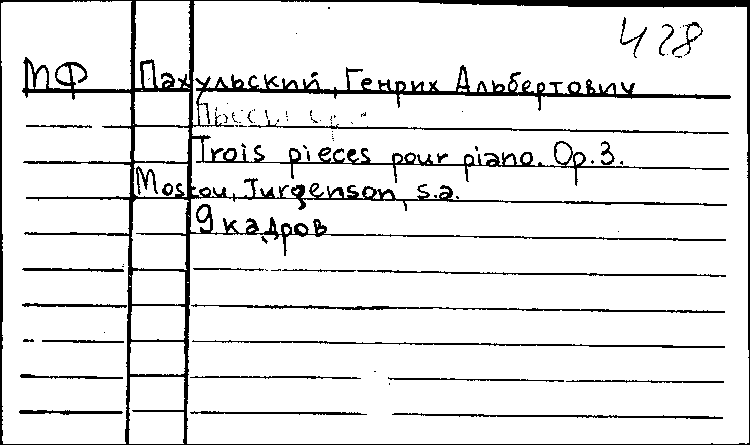 428
МФ Пахульский, Генрих Альбертович
Trois pieces pour piano. Op. 3.
Moscou, Jurgenson, s.a.
9 кадров